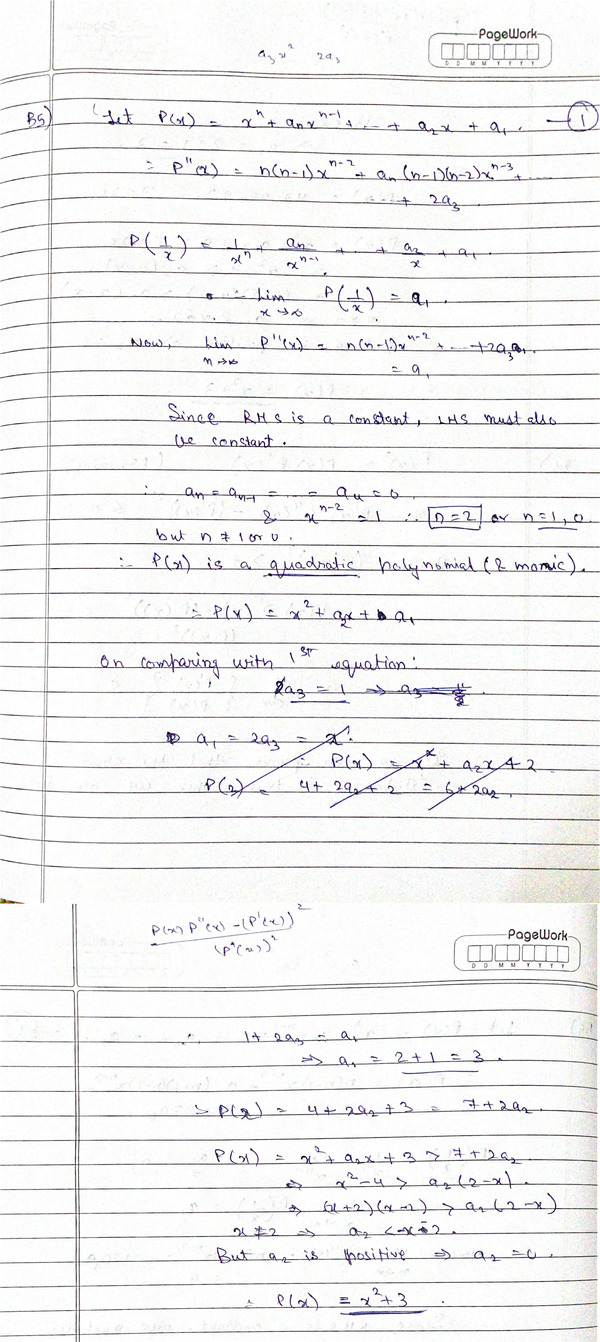 a₃x² 2a₃
PageWork
D D M M Y Y Y Y
B5) Let P(x) = xⁿ + aₙxⁿ⁻¹ + ... + a₂x + a₁. — ①
∴ P''(x) = n(n-1)xⁿ⁻² + aₙ(n-1)(n-2)xⁿ⁻³ + ...
+ 2a₃.
P(1/x) = 1/xⁿ + aₙ/xⁿ⁻¹ + ... + a₂/x + a₁.
∴ Lim x→∞ P(1/x) = a₁.
Now, Lim n→∞ P''(x) = n(n-1)xⁿ⁻² + ... + 2a₃
= a₁
Since RHS is a constant, LHS must also
be constant.
∴ aₙ = aₙ₋₁ = ... = a₄ = 0
& xⁿ⁻² = 1 ∴ n=2 or n=1,0.
but n ≠ 1 or 0.
∴ P(x) is a quadratic polynomial (& monic).
∴ P(x) = x² + a₂x + a₁
On comparing with 1st equation:
2a₃ = 1 ⇒ a₃ =
a₁ = 2a₃ =
∴ P(x) = x² + a₂x + 2
P(2) = 4 + 2a₂ + 2 = 6 + 2a₂.
P(x)P''(x) - (P'(x))² / (P'(x))²
PageWork
D D M M Y Y Y Y
∴ 1 + 2a₃ = a₁
⇒ a₁ = 2+1 = 3.
∴ P(2) = 4 + 2a₂ + 3 = 7 + 2a₂.
P(x) = x² + a₂x + 3 > 7 + 2a₂
⇒ x² - 4 > a₂(2-x).
⇒ (x+2)(x-2) > a₂(2-x)
x ≠ 2 ⇒ a₂ < -x-2.
But a₂ is positive ⇒ a₂ = 0.
∴ P(x) = x² + 3.